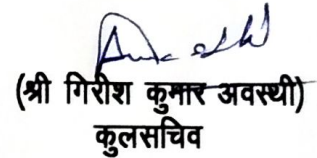 (श्री गिरीश कुमार अवस्थी)
कुलसचिव